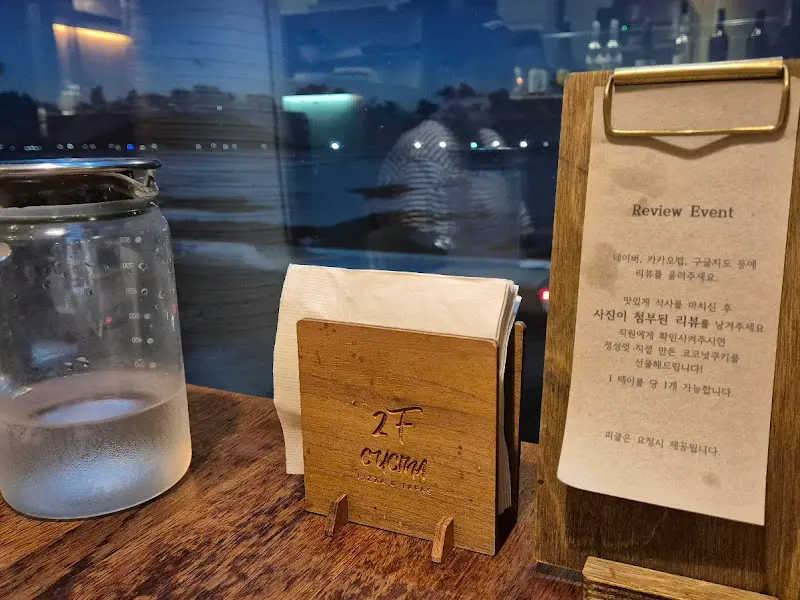 800
700
600
500
400
2F
CUCINA
PIZZA & TAPAS
Review Event
네이버, 카카오맵, 구글지도 등에
리뷰를 올려주세요.
맛있게 식사를 마치신 후
사진이 첨부된 리뷰를 남겨주세요
직원에게 확인시켜주시면
정성껏 직접 만든 코코넛쿠키를
선물해드립니다!
1 테이블 당 1개 가능합니다.
피클은 요청시 제공됩니다.